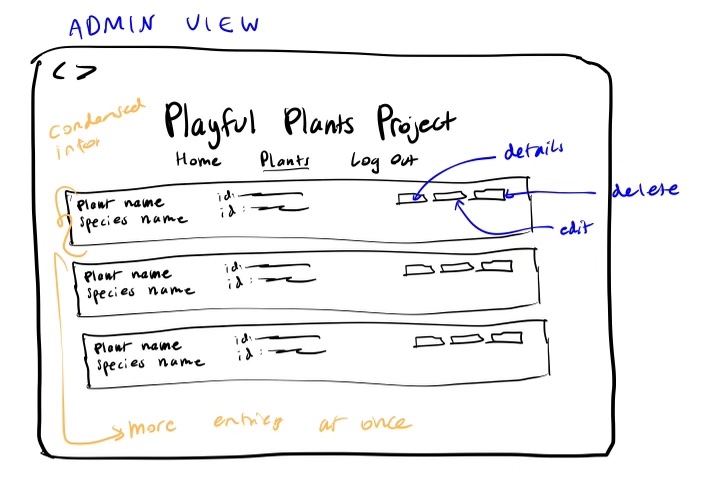 ADMIN VIEW
< >
Condensed
infor
Playful Plants Project
Home Plants Log Out
details
delete
edit
Plant name id:
Species name id:
Plant name id:
Species name id:
Plant name id:
Species name id:
More entries at once